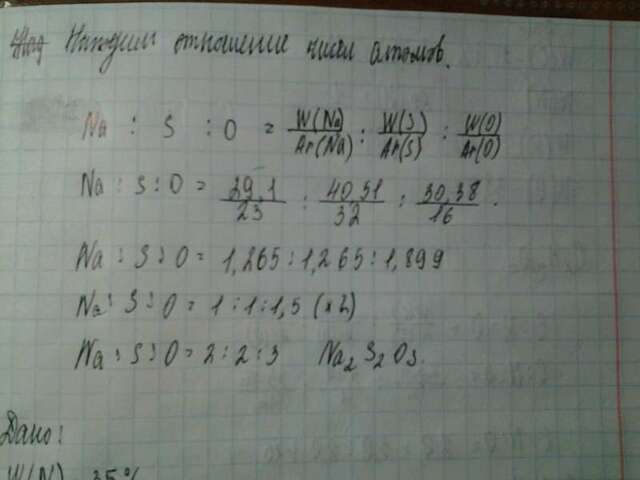 Находим отношение чисел атомов.
Na : S : O = W(Na)/Ar(Na) : W(S)/Ar(S) : W(O)/Ar(O)
Na : S : O = 29,1/23 : 40,51/32 : 30,38/16.
Na : S : O = 1,265 : 1,265 : 1,899
Na : S : O = 1 : 1 : 1,5 (×2)
Na : S : O = 2 : 2 : 3 Na₂S₂O₃
Дано:
W(N) = 35%